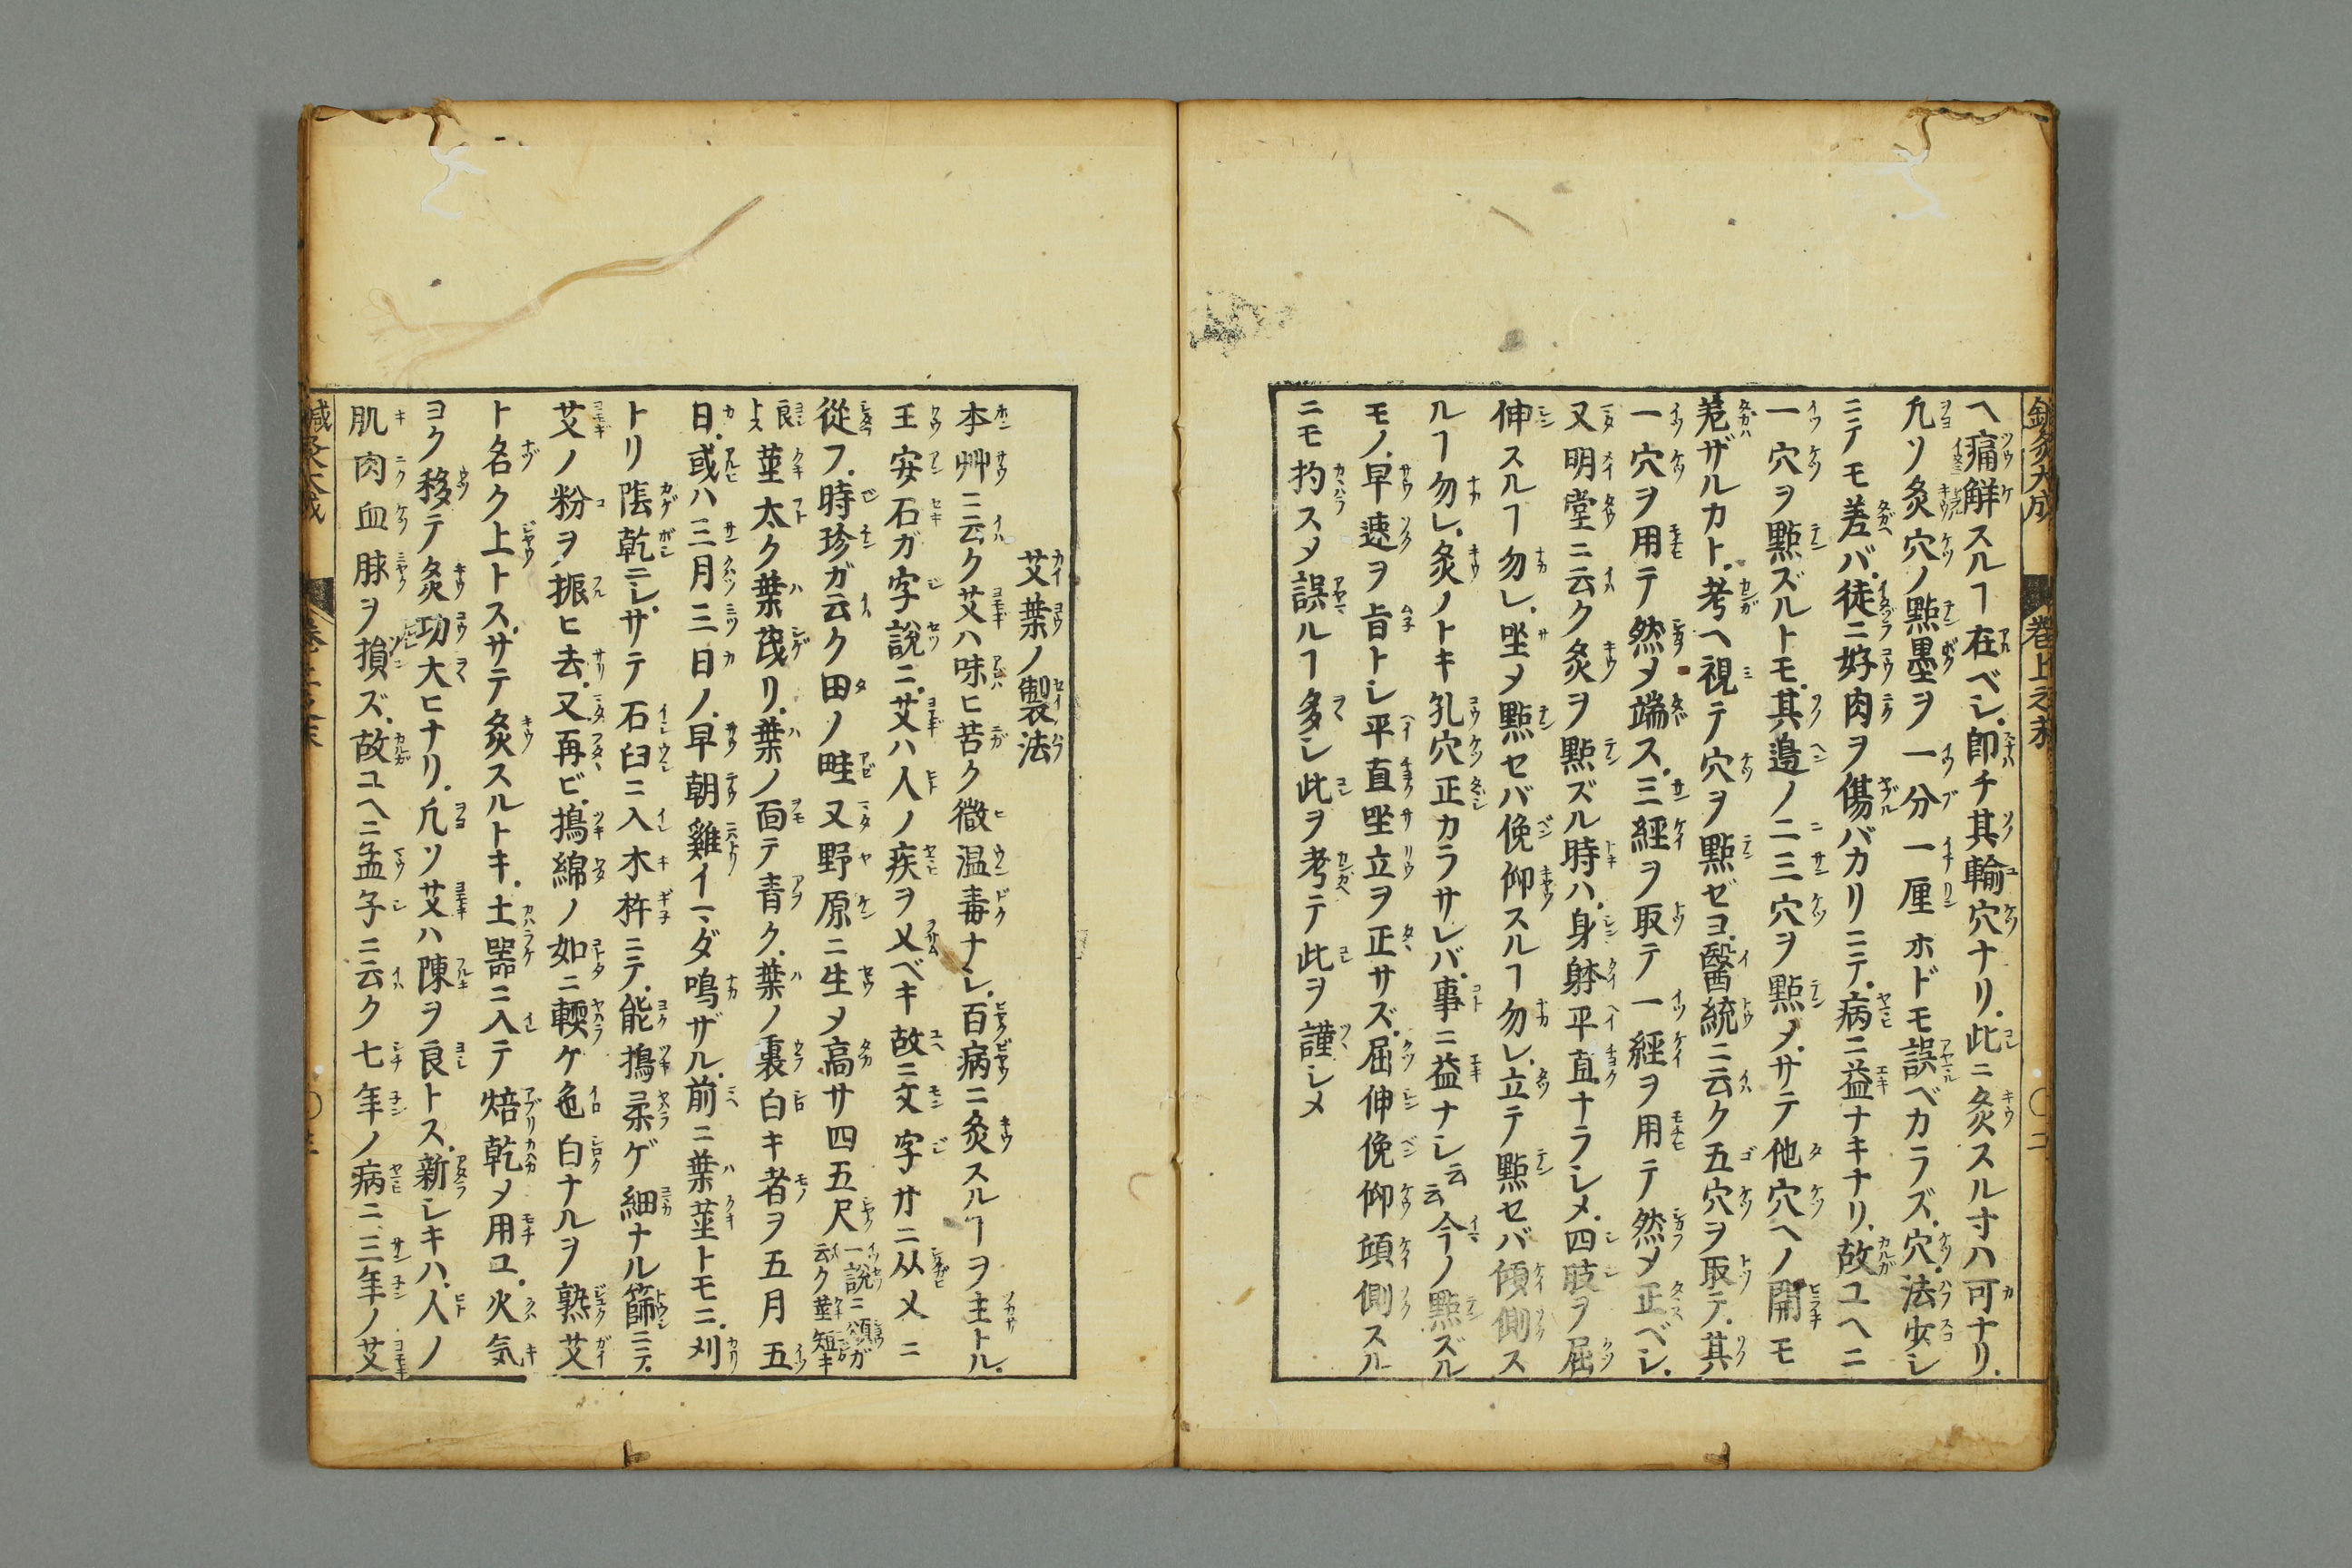 鍼灸大成 卷上之末
ヘ痛解スルヿ在ベシ即チ其輸穴ナリ此ニ灸スル寸ハ可ナリ
凢ソ灸穴ノ點墨ヲ一分一厘ホドモ誤ベカラズ穴法少シ
ニテモ差バ徒ニ好肉ヲ傷バカリニテ病ニ益ナキナリ故ユヘニ
一穴ヲ點ズルトモ其邉ノ二三穴ヲ點メサテ他穴ヘノ開モ
差ザルカト考ヘ視テ穴ヲ點ゼヨ醫統ニ云ク五穴ヲ取テ其
一穴ヲ用テ然メ端ス三經ヲ取テ一經ヲ用テ然メ正ベシ
又明堂ニ云ク灸ヲ點ズル時ハ身躰平直ナラシメ四肢ヲ屈
伸スルヿ勿レ坐メ點セバ俛仰スルヿ勿レ立テ點セバ傾側ス
ルヿ勿レ灸ノトキ孔穴正カラサレバ事ニ益ナシ云云今ノ點ズル
モノ早速ヲ旨トシ平直坐立ヲ正サズ屈伸俛仰頃側スル
ニモ抅スメ誤ルヿ多シ此ヲ考テ此ヲ謹シメ
艾葉ノ製法
本艸ニ云ク艾ハ味ヒ苦ク微温毒ナシ百病ニ灸スルヿヲ主トル
王安石ガ字說ニ艾ハ人ノ疾ヲ乂ベキ故ニ文字サニ从乂ニ
從フ時珍ガ云ク田ノ畦又野原ニ生メ高サ四五尺一說ニ頌ガ云ク莖短キ
良トス莖太ク葉茂リ葉ノ面テ青ク葉ノ裏白キ者ヲ五月五
日或ハ三月三日ノ早朝雞イマダ鳴ザル前ニ葉莖トモニ刈
トリ陰乾ニシサテ石臼ニ入木杵ニテ能搗柔ゲ細ナル篩ニテ
艾ノ粉ヲ振ヒ去又再ビ搗綿ノ如ニ輭ケ色白ナルヲ熟艾
ト名ク上トスサテ灸スルトキ土噐ニ入テ焙乾メ用ユ火気
ヨク移テ灸功大ヒナリ凢ソ艾ハ陳ヲ良トス新シキハ人ノ
肌肉血脉ヲ損ズ故ユヘニ孟子ニ云ク七年ノ病ニ三年ノ艾